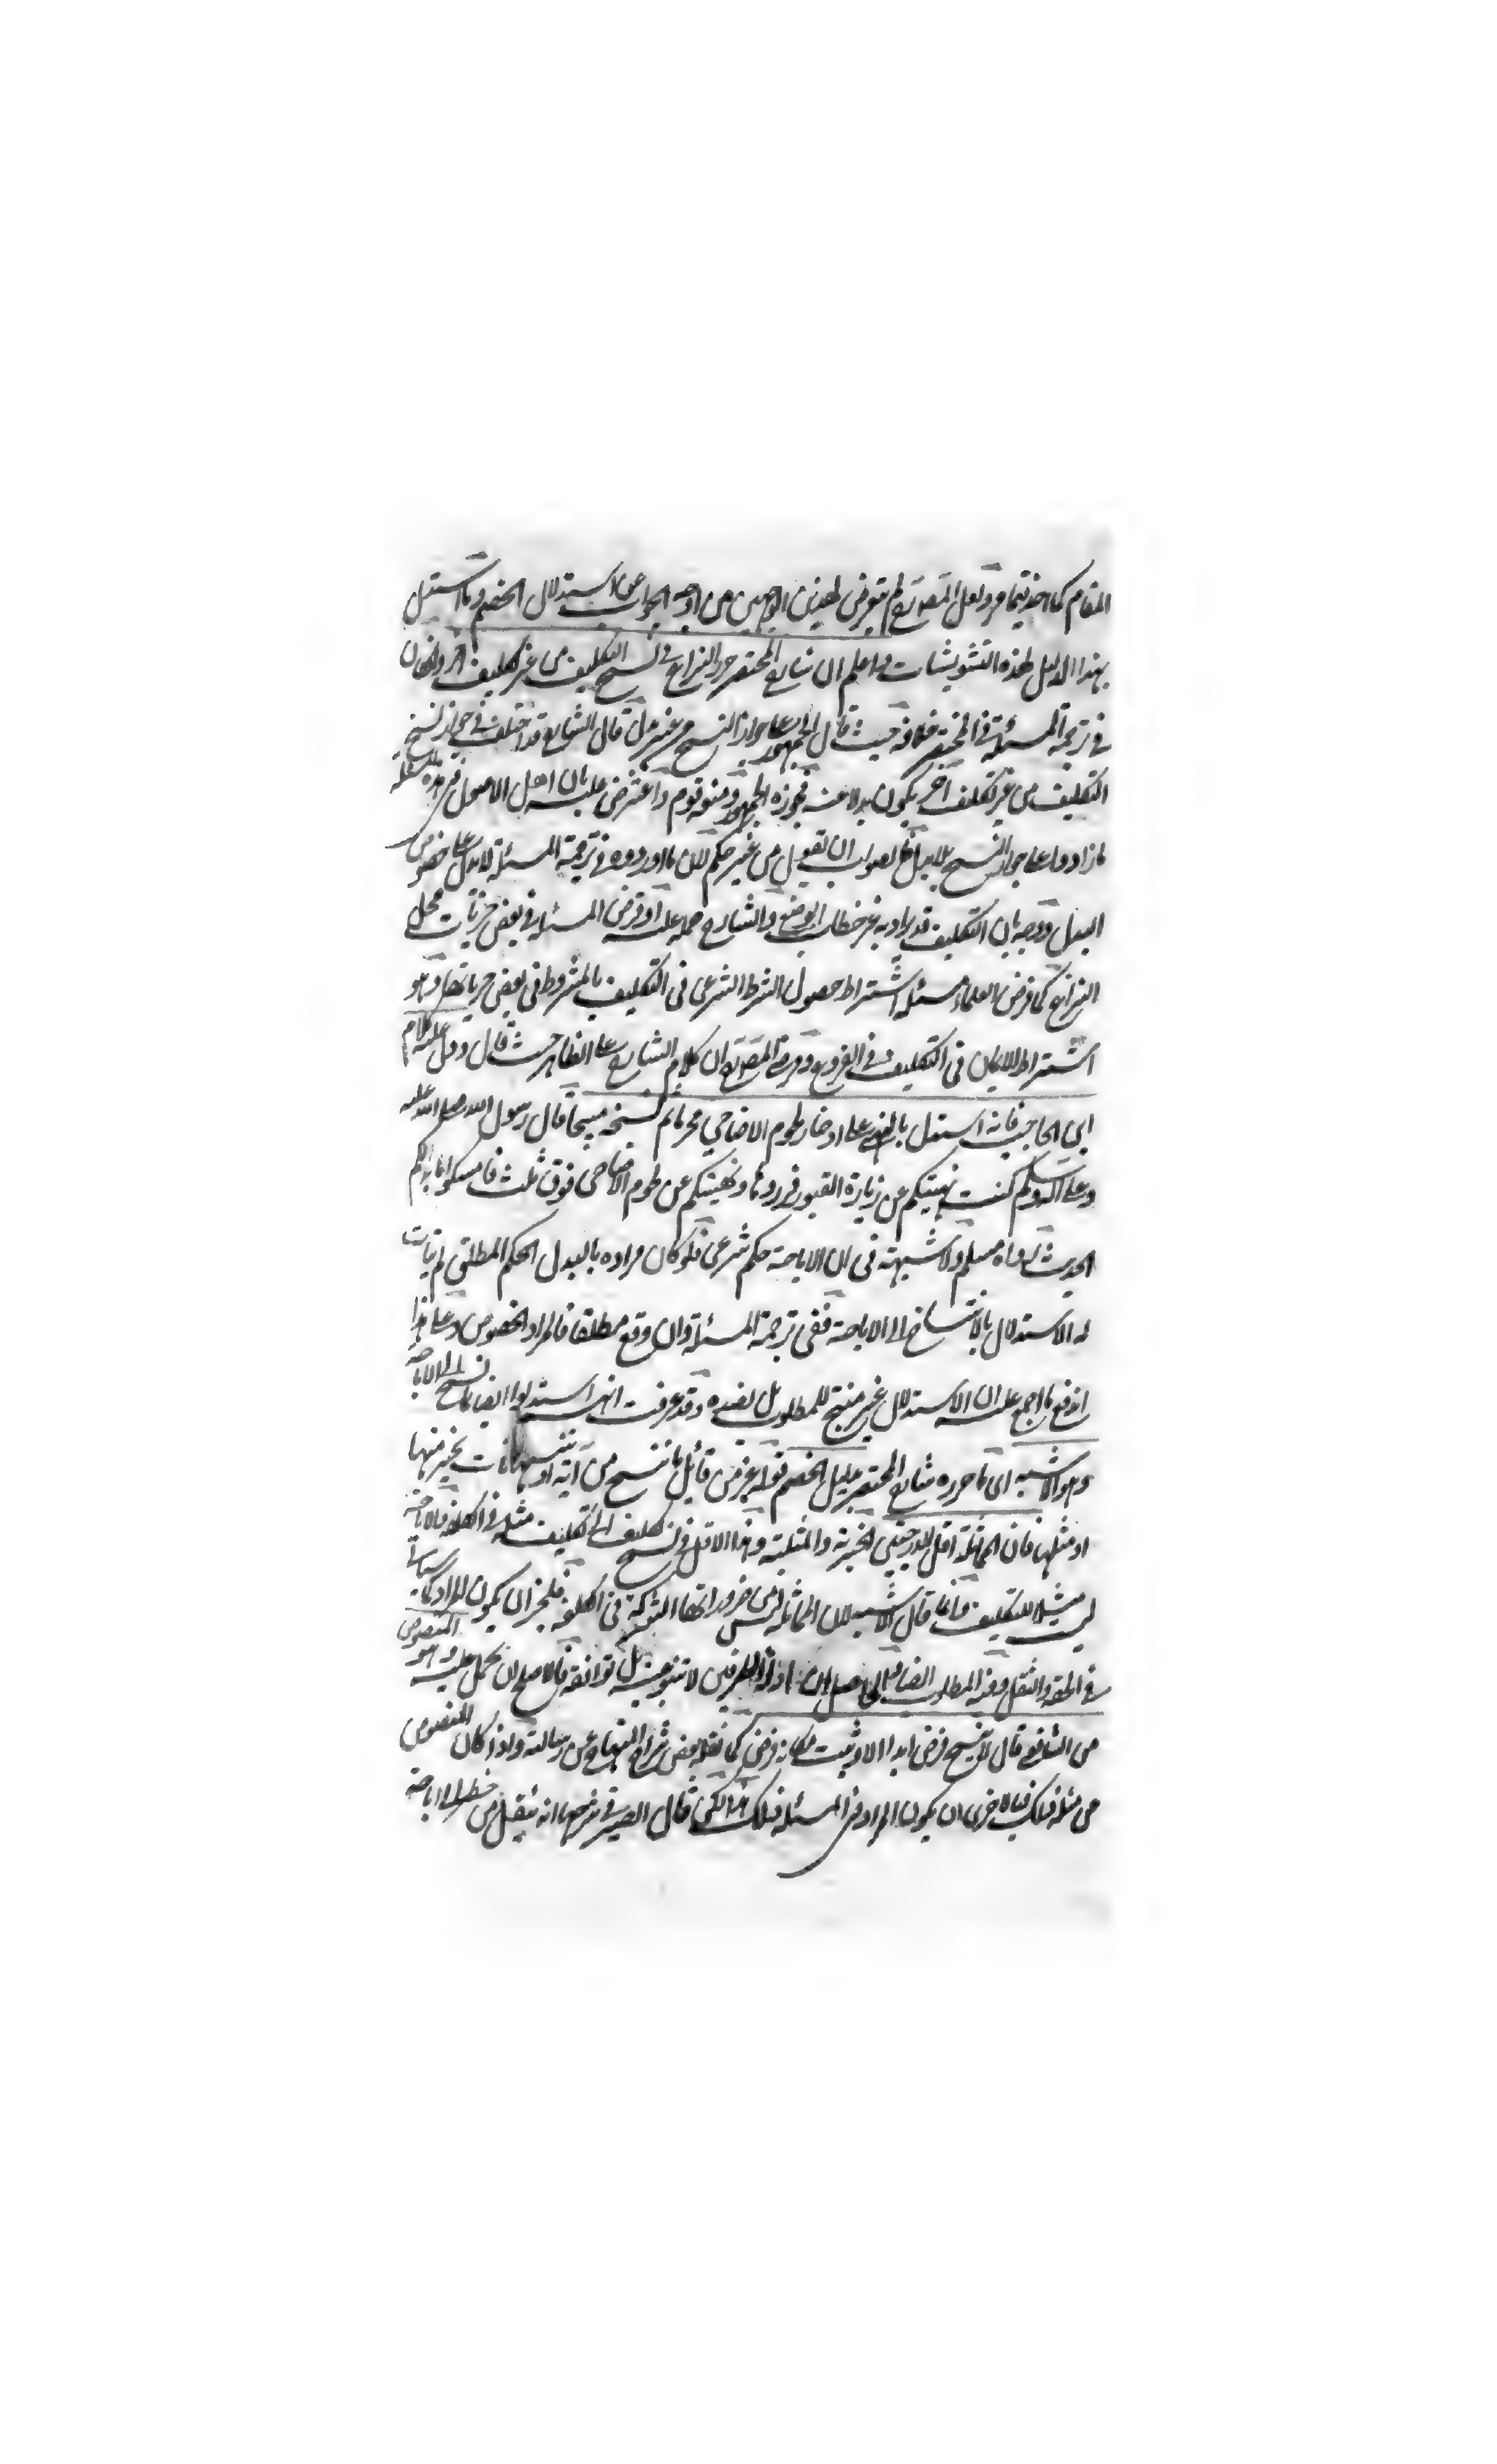 المقام كما حد فيما مر ولعل المصنف لم يتعرض لهذين الوجهين من اوجه الجواب عن استدلال الخصم وما استدل
بهذا الدليل لهذه التشويشات واعلم ان شارح المختصر حرر النزاع في نسخ التكليف من غير تكليف آخر وان كان
في ترجمة المسئلة في المختصر خلافه حيث قال الجمهور على جواز النسخ من غير بدل قال الشارح قد اختلف في جواز نسخ
التكليف من غير تكليف آخر يكون بدلا عنه فجوزه الجمهور ومنعه قوم واعترض عليه بان اهل الاصول في هذه المسئلة
ما زادوا على جواز النسخ بلا بدل فالصواب ان تقول من غير حكم لان ما اوردوه في ترجمة المسئلة لا يدل على خصوص
البدل ووجه بان التكليف قد يراد به غير خطاب الوضع والشارح حمله عليه او فرض المسئلة في بعض جزئيات محل
النزاع كما فرض العلماء مسئلة اشتراط حصول الشرط الشرعي في التكليف بالمشروط في بعض جزئياتها وهو
اشتراط الايمان في التكليف في الفروع وقرر المصنف ان كلام الشارح على الظاهر حيث قال ودل عليه كلام
ابن الحاجب فانه استدل بالنهي على ادخار لحوم الاضاحي محرما ثم نسخه مبيحا قال رسول الله صلى الله عليه
وعلى آله وسلم كنت نهيتكم عن زيارة القبور فزوروها ونهيتكم عن لحوم الاضاحي فوق ثلث فامسكوا ما بدا لكم
الحديث رواه مسلم ولا شبهة في ان الاباحة حكم شرعي فلو كان مراده بالبدل الحكم المطلق لم يتأت
له الاستدلال بالانتساخ الى الاباحة ففي ترجمة المسئلة وان وقع مطلقا فالمراد الخصوص وعلى هذا
اندفع ما اجمع عليه ان الاستدلال غير منتج للمطلوب بل لضده وقد عرفت انهم استدلوا ايضا بما نسخ الى الاباحة
وهو الاشبه اي ما حرره شارح المختصر بدليل الخصم قوله عز من قائل ما ننسخ من آية او ننسها نأت بخير منها
او مثلها فان المماثلة اقل الدرجتين الخيرية والمثلية وهذا الاقل في نسخ تكليف الى تكليف مثله في الكلفة فالاباحة
ليس مثيلا للتكليف وانما قال الاشبه لان المماثلة ليس من ضروراتها الشركة في الكلفة فليجز ان يكون المراد كما سيأتي
في الخفة والثقل وفيه المطلوب ايضا الحاصل ان ادلة الطرفين لا تنبو عنه بل توافقه فالاصلح ان يحمل عليه وهو المنصوص
من الشافعي قال لا ينسخ فرض ابدا الا وثبت مكانه فرض كما نقله بعض شراح المنهاج عن رسالته واذا كان المنصوص
من مثله ذلك فبالاحرى ان يكون المراد في المسئلة ذلك لكن قال الصيرفي في شرحها انه ينقل من حظر الى اباحة